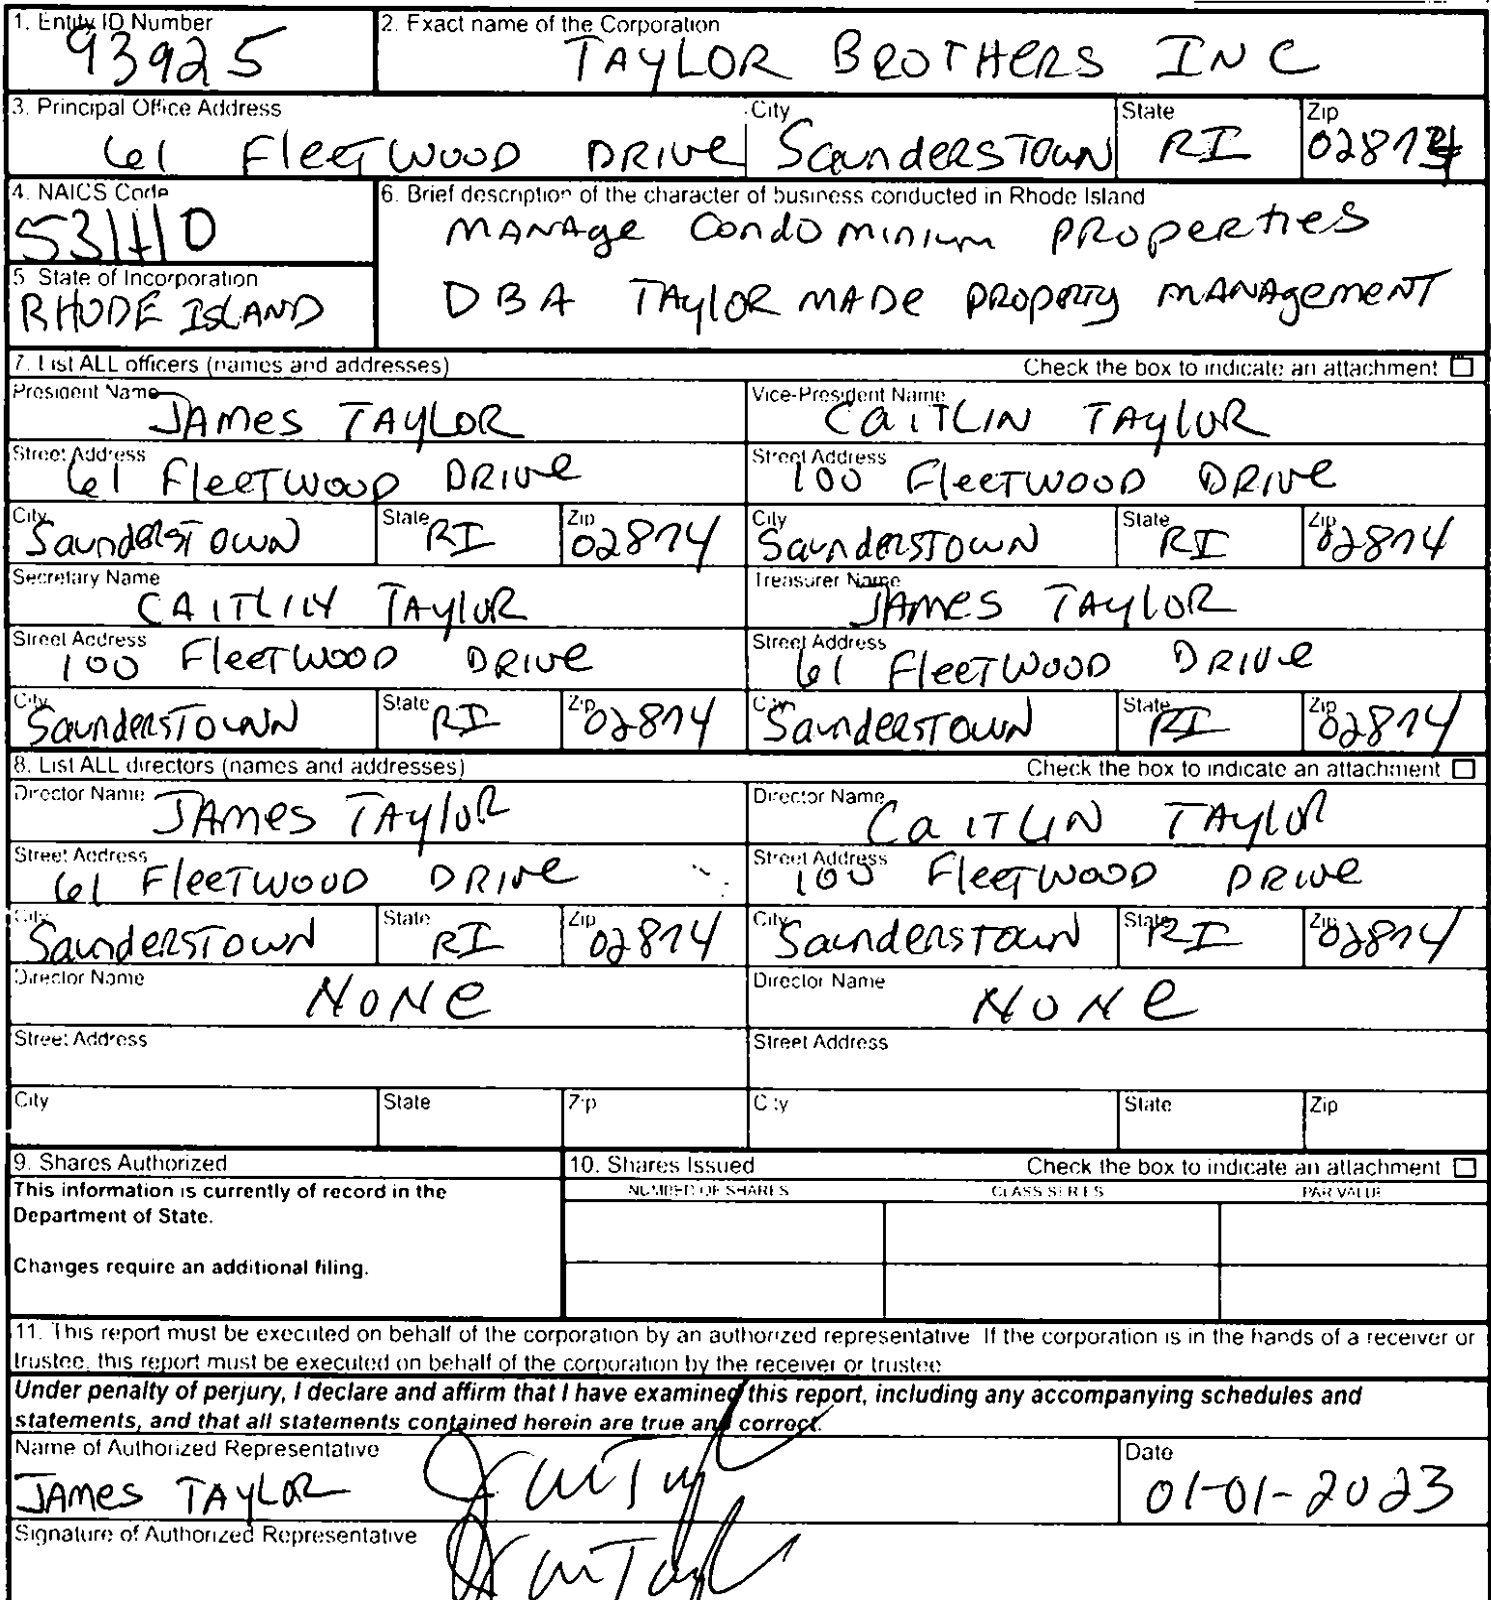 1. Entity ID Number
93925
2. Exact name of the Corporation
TAYLOR BROTHERS INC
3. Principal Office Address
61 FleetWOOD DRIVE
City
SaunderSTOWN
State
RI
Zip
02874
4. NAICS Code
531110
5. State of Incorporation
RHODE ISLAND
6. Brief description of the character of business conducted in Rhode Island
MANAge CondOminium PROperties
DBA TAYLOR MADE PROPERTY MANAgemENT
7. List ALL officers (names and addresses)
Check the box to indicate an attachment
President Name
JAMes TAYLOR
Vice-President Name
CaITLIN TAYLOR
Street Address
61 FleeTWOOD DRIVe
Street Address
100 FleeTWOOD DRIVe
City
SaunderSTOWN
State
RI
Zip
02874
City
SaunderSTOWN
State
RI
Zip
02874
Secretary Name
CAITLIN TAYLOR
Treasurer Name
JAMes TAYLOR
Street Address
100 FleeTWOOD DRIVe
Street Address
61 FleeTWOOD DRIVe
City
SaunderSTOWN
State
RI
Zip
02874
City
SaunderSTOWN
State
RI
Zip
02874
8. List ALL directors (names and addresses)
Check the box to indicate an attachment
Director Name
JAMes TAYLOR
Director Name
CaITLIN TAYLOR
Street Address
61 FleeTWOOD DRIVe
Street Address
100 FleeTWOOD DRIVe
City
SaunderSTOWN
State
RI
Zip
02874
City
SaunderSTOWN
State
RI
Zip
02874
Director Name
NONe
Director Name
NONe
Street Address
Street Address
City
State
Zip
City
State
Zip
9. Shares Authorized
This information is currently of record in the
Department of State.
Changes require an additional filing.
10. Shares Issued
Check the box to indicate an attachment
NUMBER OF SHARES
CLASS SERIES
PAR VALUE
11. This report must be executed on behalf of the corporation by an authorized representative. If the corporation is in the hands of a receiver or
trustee, this report must be executed on behalf of the corporation by the receiver or trustee
Under penalty of perjury, I declare and affirm that I have examined this report, including any accompanying schedules and
statements, and that all statements contained herein are true and correct.
Name of Authorized Representative
JAMes TAYLOR
Date
01-01-2023
Signature of Authorized Representative